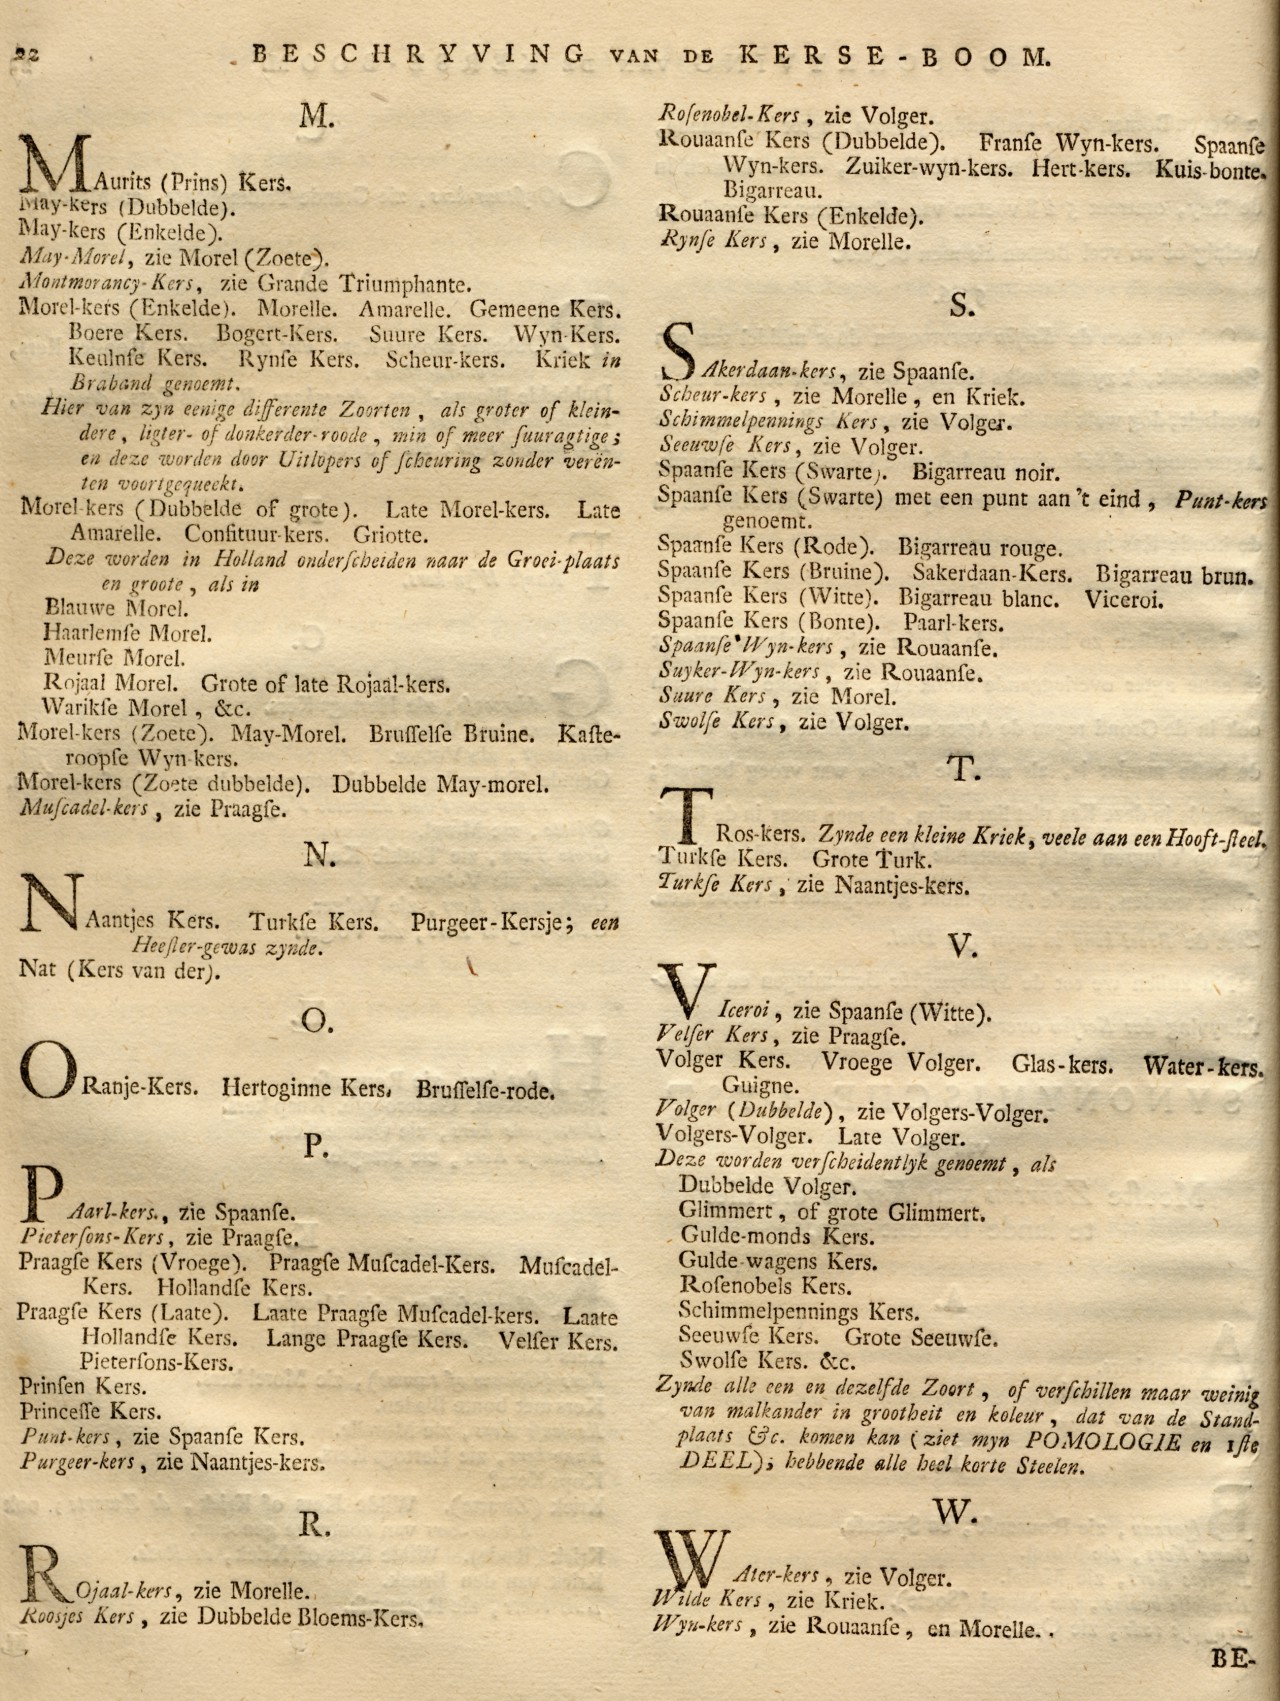 22 BESCHRYVING VAN DE KERSE-BOOM.
M.
MAurits (Prins) Kers.
May-kers (Dubbelde).
May-kers (Enkelde).
May-Morel, zie Morel (Zoete).
Montmorancy-Kers, zie Grande Triumphante.
Morel-kers (Enkelde). Morelle. Amarelle. Gemeene Kers.
Boere Kers. Bogert-Kers. Suure Kers. Wyn-Kers.
Keulnſe Kers. Rynſe Kers. Scheur-kers. Kriek in
Braband genoemt.
Hier van zyn eenige differente Zoorten, als groter of klein-
dere, ligter- of donkerder-roode, min of meer ſuuragtige;
en deze worden door Uitlopers of ſcheuring zonder verën-
ten voortgequeekt.
Morel-kers (Dubbelde of grote). Late Morel-kers. Late
Amarelle. Confituur-kers. Griotte.
Deze worden in Holland onderſcheiden naar de Groei-plaats
en groote, als in
Blauwe Morel.
Haarlemſe Morel.
Meurſe Morel.
Rojaal Morel. Grote of late Rojaal-kers.
Warikſe Morel, &c.
Morel-kers (Zoete). May-Morel. Bruſſelſe Bruine. Kaſte-
roopſe Wyn-kers.
Morel-kers (Zoete dubbelde). Dubbelde May-morel.
Muſcadel-kers, zie Praagſe.
N.
NAantjes Kers. Turkſe Kers. Purgeer-Kersje; een
Heeſter-gewas zynde.
Nat (Kers van der).
O.
ORanje-Kers. Hertoginne Kers. Bruſſelſe-rode.
P.
PAarl-kers., zie Spaanſe.
Pieterſons-Kers, zie Praagſe.
Praagſe Kers (Vroege). Praagſe Muſcadel-Kers. Muſcadel-
Kers. Hollandſe Kers.
Praagſe Kers (Laate). Laate Praagſe Muſcadel-kers. Laate
Hollandſe Kers. Lange Praagſe Kers. Velſer Kers.
Pieterſons-Kers.
Prinſen Kers.
Princeſſe Kers.
Punt-kers, zie Spaanſe Kers.
Purgeer-kers, zie Naantjes-kers.
R.
ROjaal-kers, zie Morelle.
Roosjes Kers, zie Dubbelde Bloems-Kers.
Roſenobel-Kers, zie Volger.
Rouaanſe Kers (Dubbelde). Franſe Wyn-kers. Spaanſe
Wyn-kers. Zuiker-wyn-kers. Hert-kers. Kuis-bonte.
Bigarreau.
Rouaanſe Kers (Enkelde).
Rynſe Kers, zie Morelle.
S.
SAkerdaan-kers, zie Spaanſe.
Scheur-kers, zie Morelle, en Kriek.
Schimmelpennings Kers, zie Volger.
Seeuwſe Kers, zie Volger.
Spaanſe Kers (Swarte). Bigarreau noir.
Spaanſe Kers (Swarte) met een punt aan 't eind, Punt-kers
genoemt.
Spaanſe Kers (Rode). Bigarreau rouge.
Spaanſe Kers (Bruine). Sakerdaan-Kers. Bigarreau brun.
Spaanſe Kers (Witte). Bigarreau blanc. Viceroi.
Spaanſe Kers (Bonte). Paarl-kers.
Spaanſe Wyn-kers, zie Rouaanſe.
Suyker-Wyn-kers, zie Rouaanſe.
Suure Kers, zie Morel.
Swolſe Kers, zie Volger.
T.
TRos-kers. Zynde een kleine Kriek, veele aan een Hooft-ſteel.
Turkſe Kers. Grote Turk.
Turkſe Kers, zie Naantjes-kers.
V.
VIceroi, zie Spaanſe (Witte).
Velſer Kers, zie Praagſe.
Volger Kers. Vroege Volger. Glas-kers. Water-kers.
Guigne.
Volger (Dubbelde), zie Volgers-Volger.
Volgers-Volger. Late Volger.
Deze worden verſcheidentlyk genoemt, als
Dubbelde Volger.
Glimmert, of grote Glimmert.
Gulde-monds Kers.
Gulde-wagens Kers.
Roſenobels Kers.
Schimmelpennings Kers.
Seeuwſe Kers. Grote Seeuwſe.
Swolſe Kers. &c.
Zynde alle een en dezelfde Zoort, of verſchillen maar weinig
van malkander in grootheit en koleur, dat van de Stand-
plaats &c. komen kan (ziet myn POMOLOGIE en 1ſte
DEEL); hebbende alle heel korte Steelen.
W.
WAter-kers, zie Volger.
Wilde Kers, zie Kriek.
Wyn-kers, zie Rouaanſe, en Morelle.
BE-